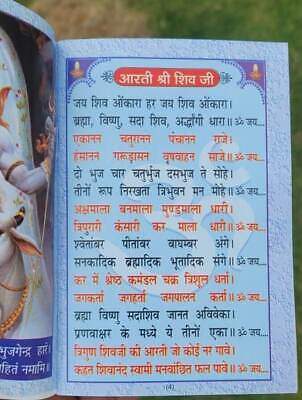 आरती श्री शिव जी
जय शिव ओंकारा हर जय शिव ओंकारा।
ब्रह्मा, विष्णु, सदा शिव, अर्द्धांगी धारा॥ ॐ जय....
एकानन चतुरानन पंचानन राजे।
हंमानन गरूड़ासन वृषवाहन साजे॥ ॐ जय....
दो भुज चार चतुर्भुज दसभुज ते सोहे।
तीनों रूप निरखता त्रिभुवन मन मोहे॥ ॐ जय....
अक्षमाला बनमाला मुण्डमाला धारी।
त्रिपुरारी कंसारी कर माला धारी॥ ॐ जय....
श्वेतांबर पीतांबर बाघम्बर अंगे।
सनकादिक ब्रह्मादिक भूतादिक संगे॥ ॐ जय....
कर में श्रेष्ठ कमंडल चक्र त्रिशूल धर्ता।
जगकर्ता जगहर्ता जगपालन कर्ता॥ ॐ जय....
ब्रह्मा विष्णु सदाशिव जानत अविवेका।
प्रणवाक्षर के मध्ये ये तीनों एका॥ ॐ जय....
त्रिगुण शिवजी की आरती जो कोई नर गावे।
कहत शिवानंद स्वामी मनवांछित फल पावे॥ ॐ जय....
(4)
भुजगेन्द्र हारं
हितं नमामि॥